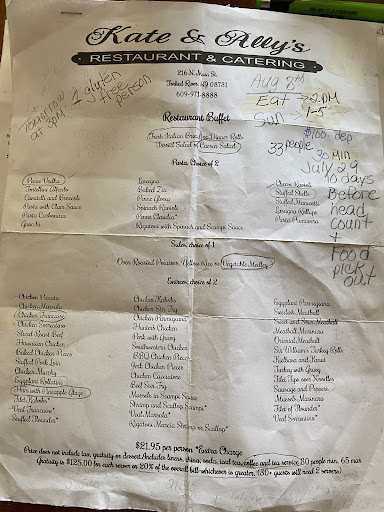 Kate & Ally's
RESTAURANT & CATERING
216 N. Main St.
Forked River, NJ 08731
609-971-8888
Tomorrow at 3PM
1 gluten free person
Aug 8th
Eat → 2 PM
Sun → 1-5
$100. dep
33 people
30 MIN
July 29
10 days
Before
head
count
+
Food
pick
out
Restaurant Buffet
Fresh Italian Bread or Dinner Rolls
Tossed Salad or Caesar Salad
Pasta, Choice of 2
Penne Vodka
Tortellini Alfredo
Cavatelli and Broccoli
Pasta with Clam Sauce
Pasta Carbonara
Gnocchi
Lasagna
Baked Ziti
Penne Gloria
Spinach Ravioli
Penne Claudia*
Rigatoni with Spinach and Scampi Sauce
Cheese Ravioli
Stuffed Shells
Stuffed Manicotti
Lasagna Rollups
Pasta Primavera
Sides, choice of 1
Oven Roasted Potatoes, Yellow Rice or Vegetable Medley
Entrees, choice of 2
Chicken Piccata
Chicken Marsala
Chicken Francaise
Chicken Sorrentino
Sliced Roast Beef
Hawaiian Chicken
Baked Chicken Pieces
Stuffed Pork Loin
Chicken Murphy
Eggplant Rollatini
Ham with Pineapple Glaze
Veal Francaise*
Stuffed Flounder*
Chicken Kabobs
Chicken Stir Fry
Chicken Parmigiana
Hunters Chicken
Pork with Gravy
Southwestern Chicken
BBQ Chicken Pieces
Jerk Chicken Pieces
Chicken Cacciatore
Beef Stir Fry
Mussels in Scampi Sauce
Shrimp and Scallop Scampi*
Veal Marsala*
Rigatoni, Marcia Shrimp or Scallop*
Eggplant Parmigiana
Swedish Meatball
Sweet and Sour Meatball
Meatball Marinara
Oriental Meatball
Sir William's Turkey Rolls
Kielbasa and Kraut
Turkey with Gravy
Filet Tips over Noodles
Sausage and Peppers
Mussels Marinara
Filet of Flounder*
Veal Sorrentino*
$21.95 per person *Extra Charge
Price does not include tax, gratuity or dessert. Includes linens, china, soda, iced tea, coffee and tea service. 30 people min. 65 max
Gratuity is $125.00 for each server or 20% of the overall bill-whichever is greater. (30+ guests will need 2 servers)